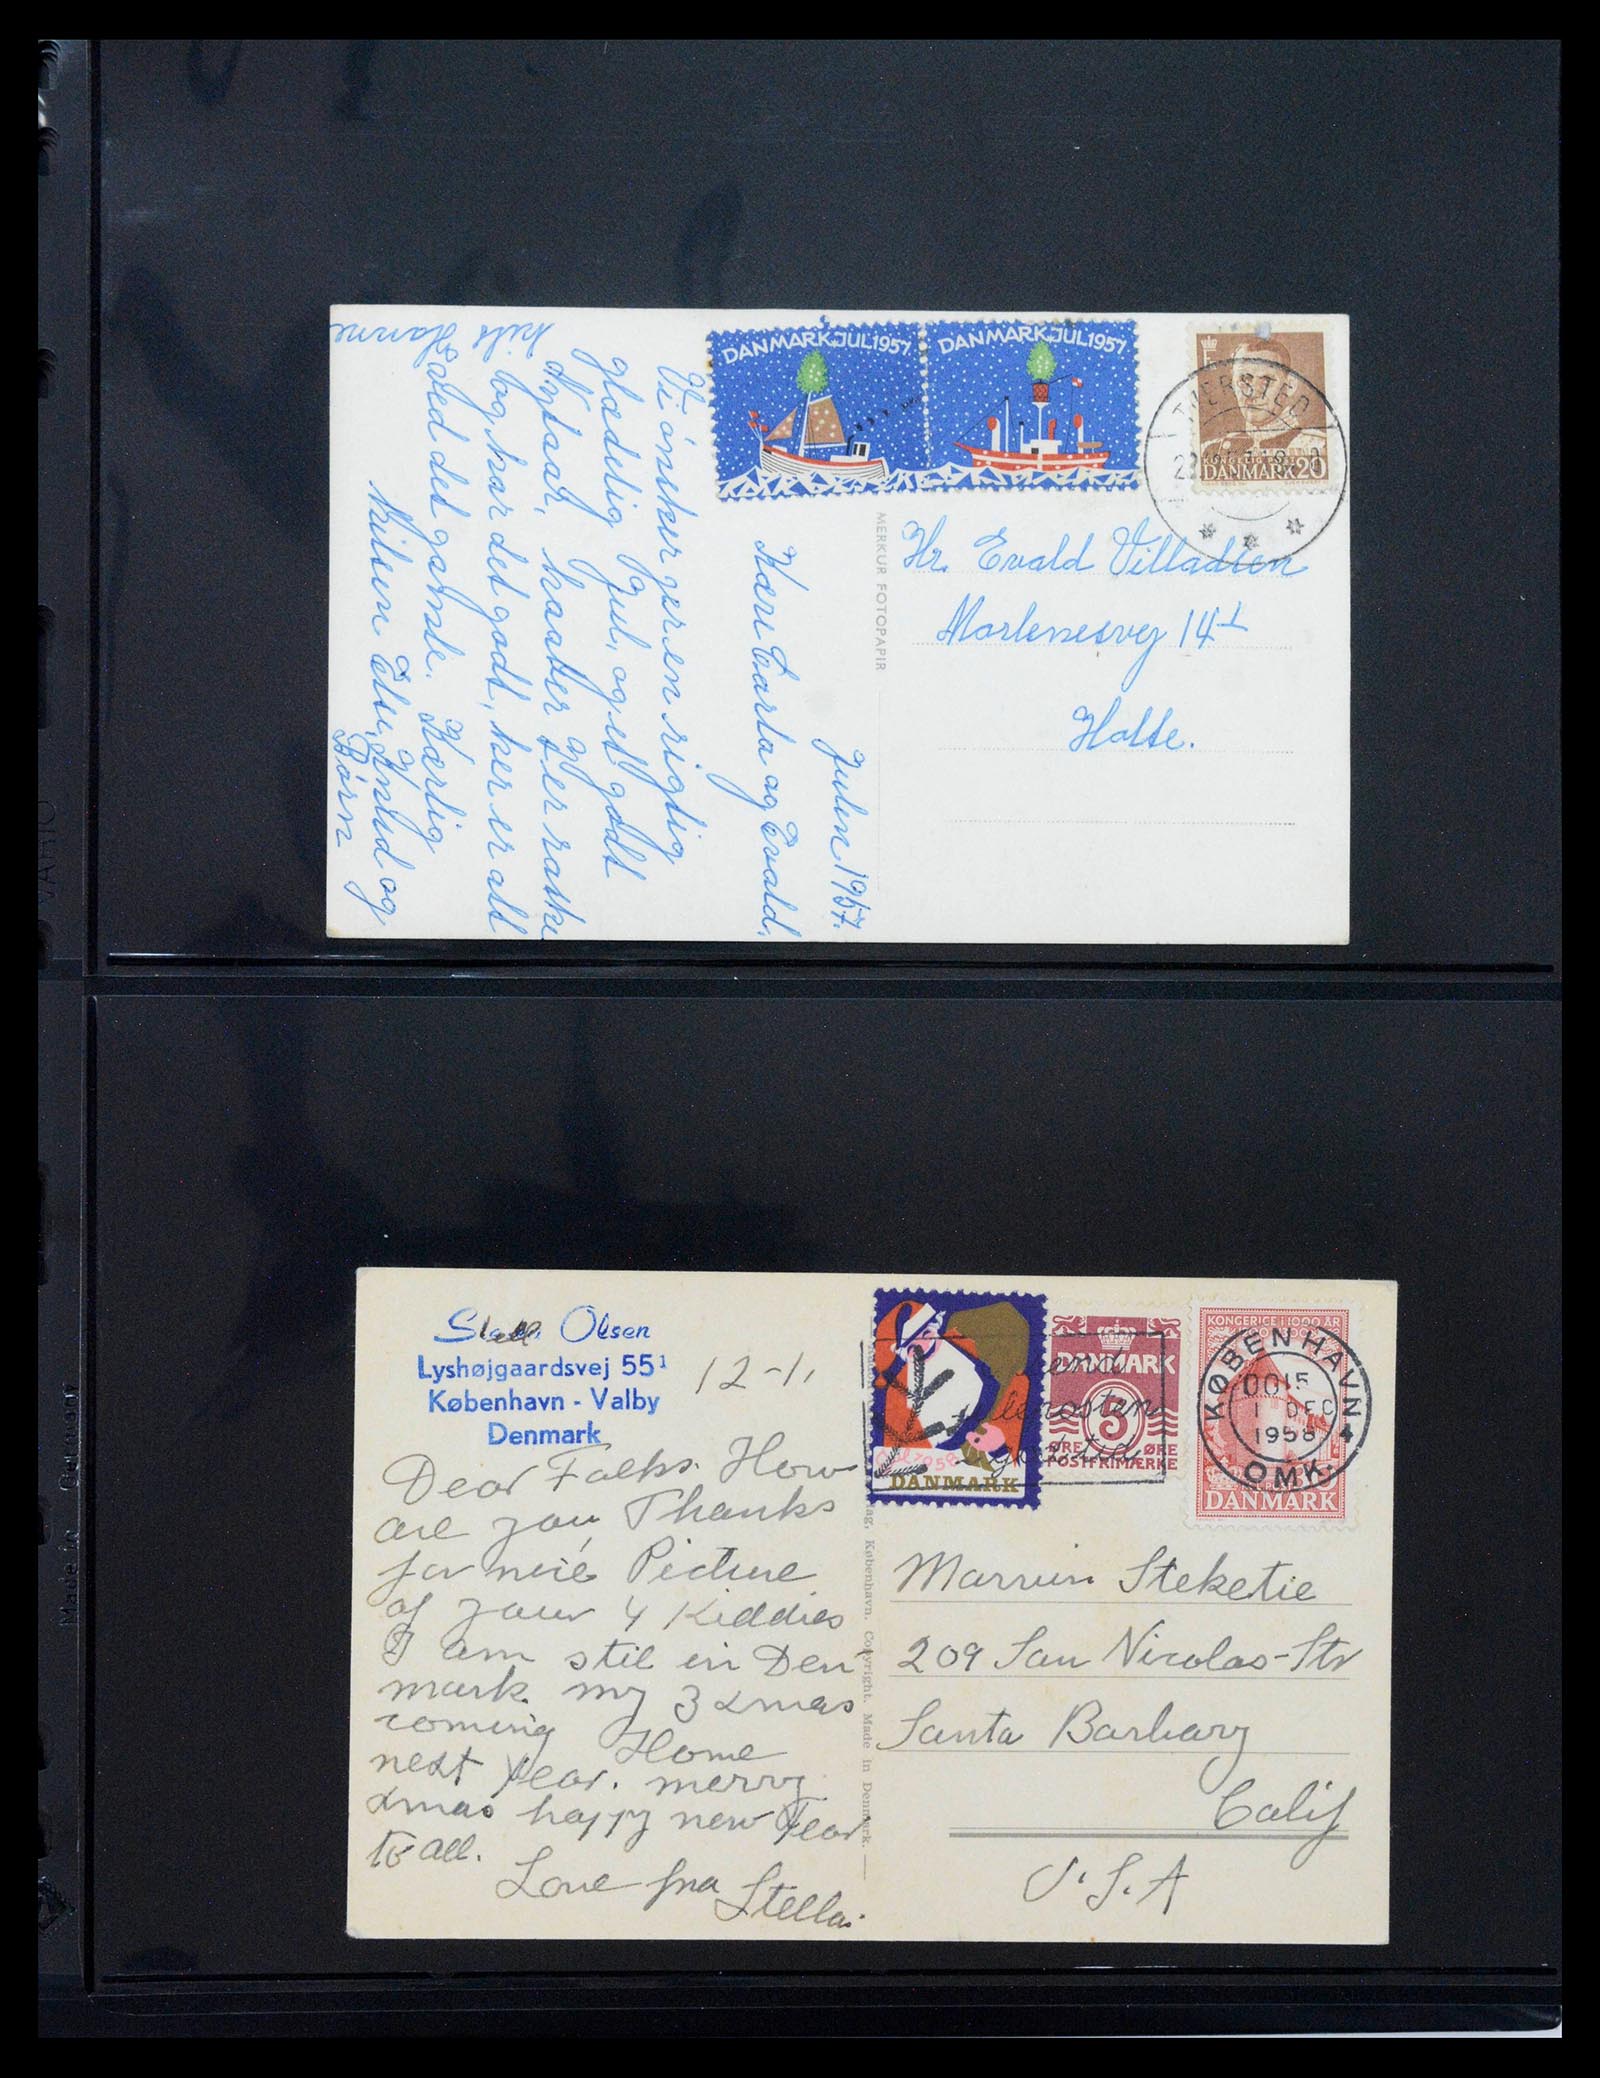 DANMARK JUL 1957
DANMARK JUL 1957
DANMARK 20
TJERSTED
MERKUR FOTOPAPIR
Hr. Evald Villadsen
14
Holte.
Julen 1957.
Kære Carla og Evald.
Vi ønsker jer en rigtig
glædelig Jul, og et godt
Nytaar, haaber I er raske
og har det godt, her er alt
ved det gamle. Kærlig
Hilsen Else, Knud og
Børn
Olsen
Lyshøjgaardsvej 55¹
København - Valby
Denmark
12-1,
Dear Folks. How
are you, Thanks
for Picture
of your 4 Kiddies
I am stil in Den
mark. my 3 xmas
coming Home
next year. merry
xmas happy new Year
to all.
Love fra Stella.
DANMARK
DANMARK
5
ØRE ØRE
POSTFRIMÆRKE
KONGERIGE I 1000 ÅR
DANMARK
KØBENHAVN
0015
1 DEC
1958
OMK.
København. Copyright. Made in Denmark.
Steketie
209 San Nicolas-Str
Santa Barbary
Calif
U.S.A
VARIO
Made in Germany